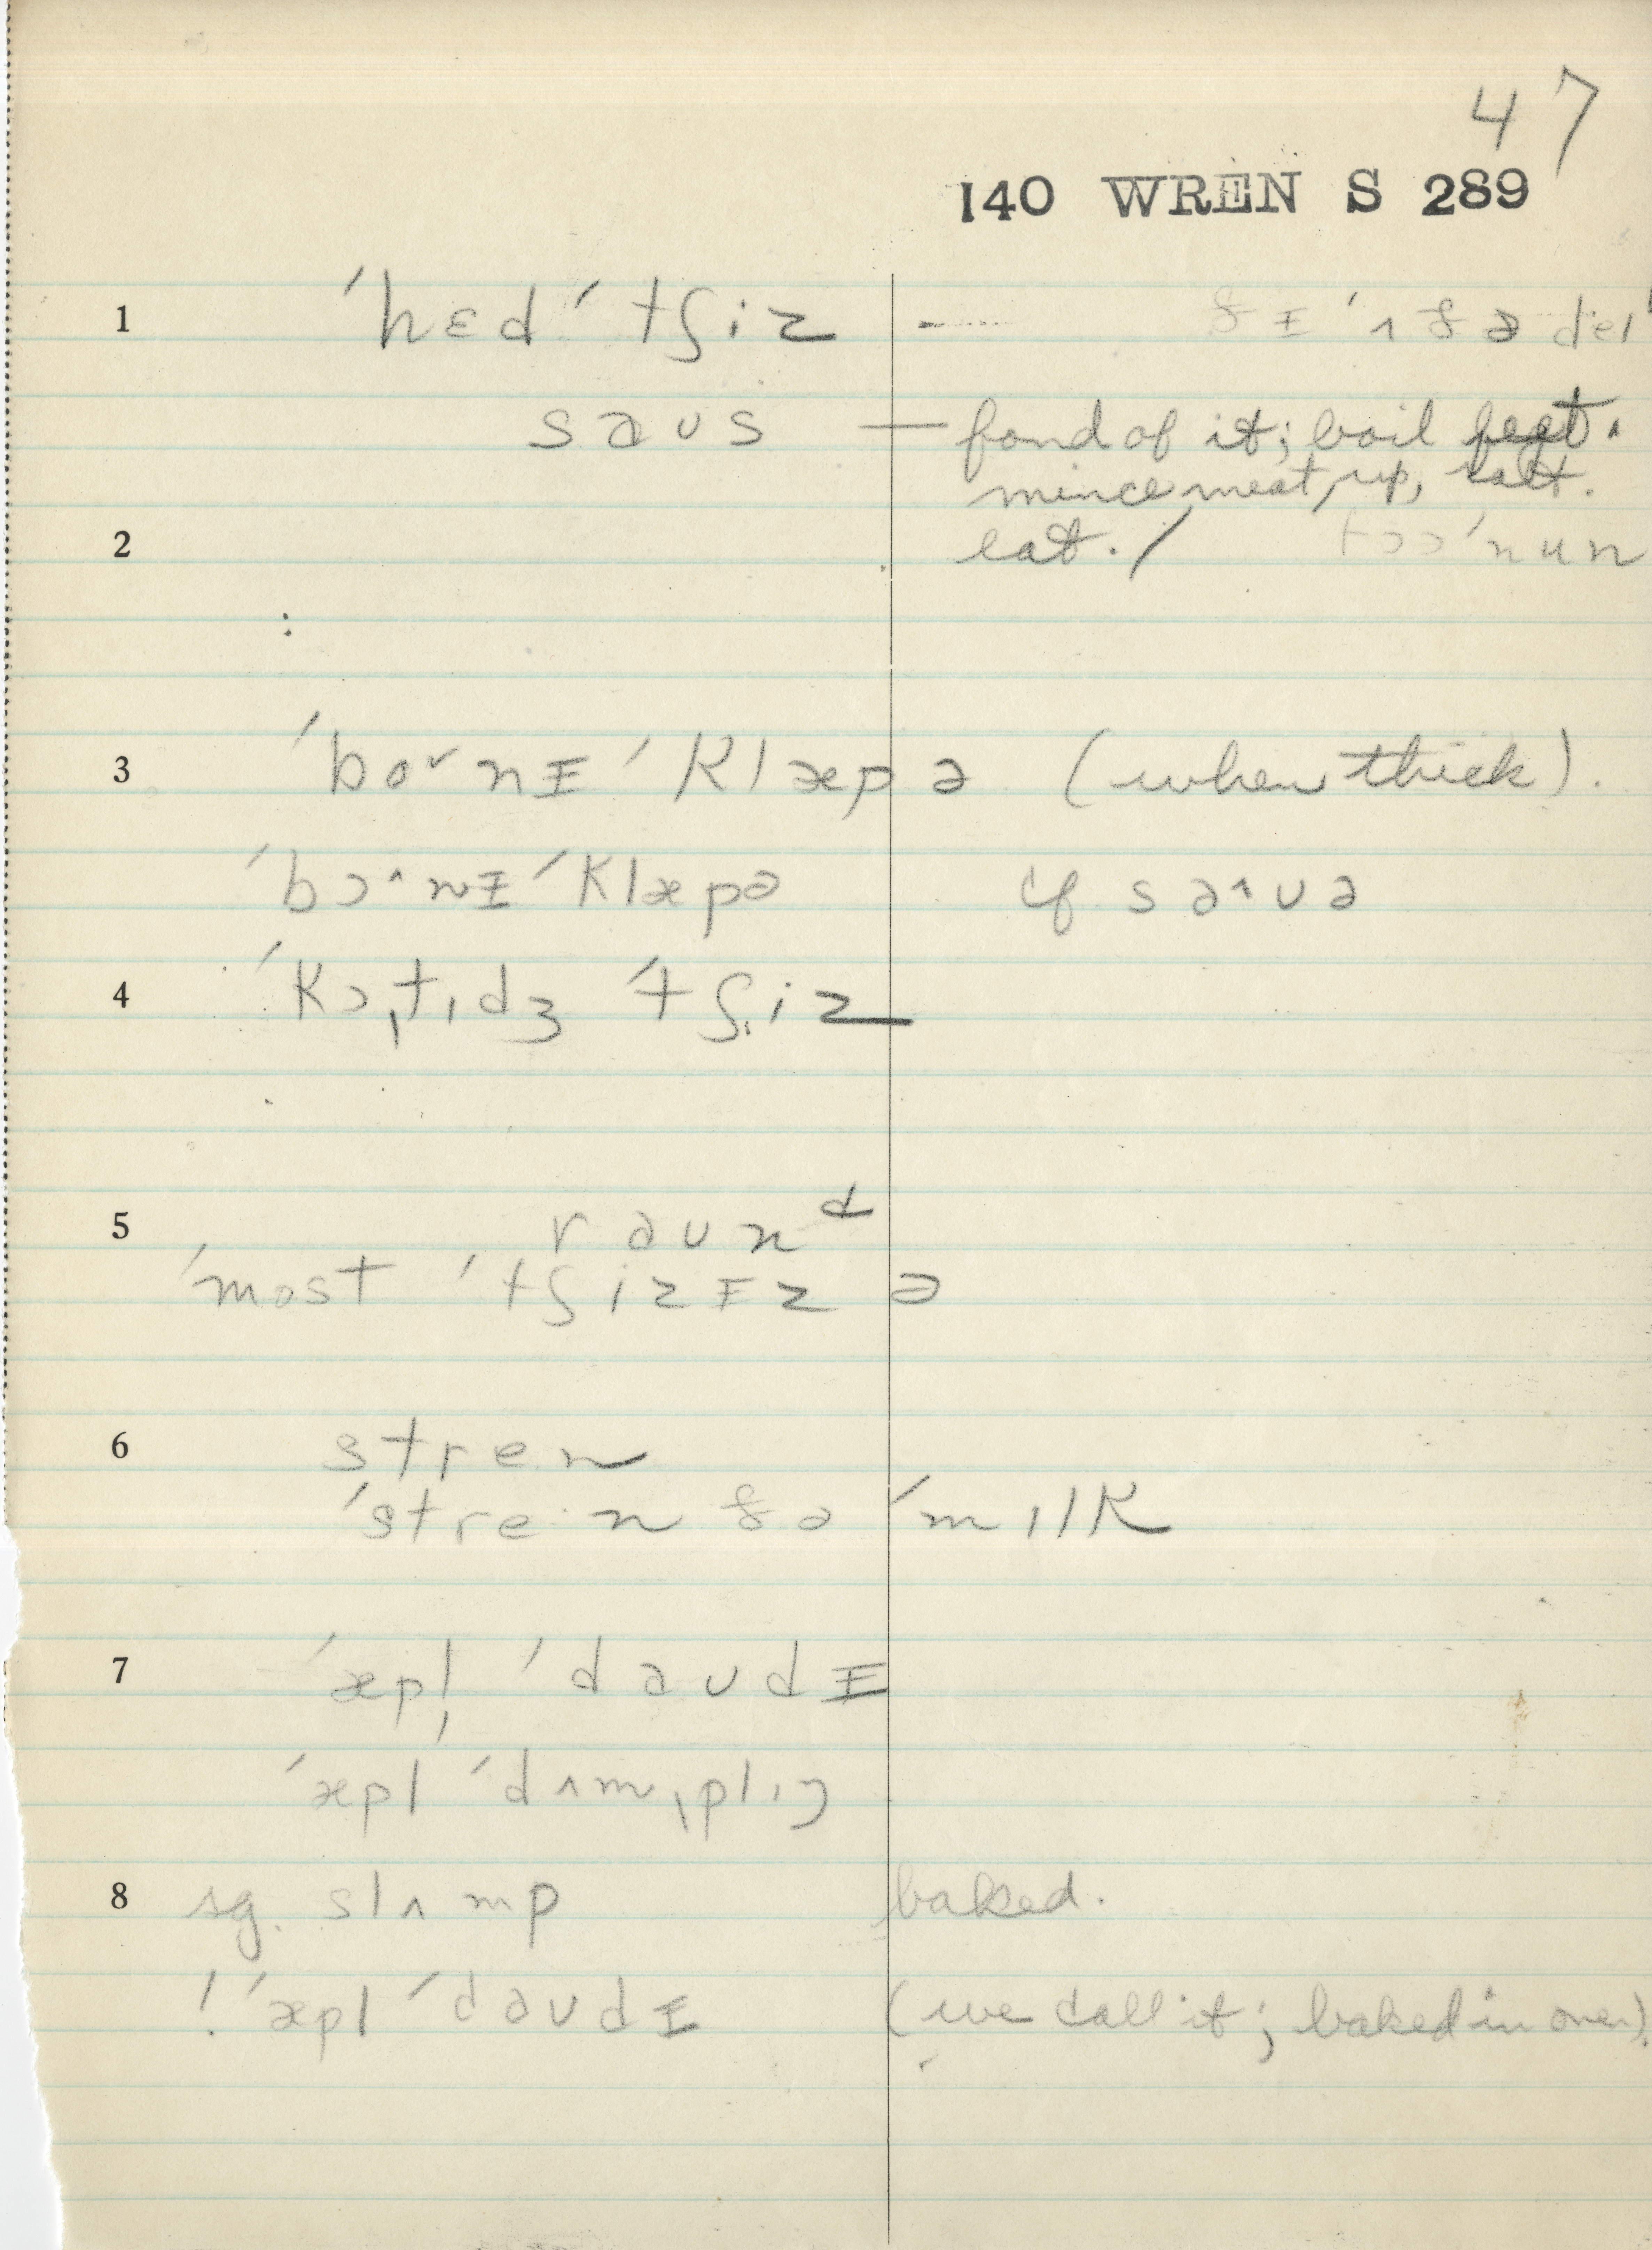 47
140 WREN S 289
1 ˈhɛd ˈtʃiz — ðɪ ˈʌðə deɪ
saus — fond of it; boil feet.
mince meat, up, salt.
2 eat. /
3 ˈbo˅nɪ ˈklæpə (when thick).
ˈbɔ^nɪ ˈklæpə if sa^uə
4 ˈkɔˌtɪdʒ ˈtʃiz
5 raunᵈ
ˈmost ˈtʃizɪz ə
6 stren
ˈstre·n ðə ˈmɪlk
7 ˈæpl̩ ˈdaudɪ
ˈæpl ˈdʌmˌplɪŋ
8 sg. slʌmp baked.
! ˈæpl ˈdaudɪ (we call it; baked in oven).